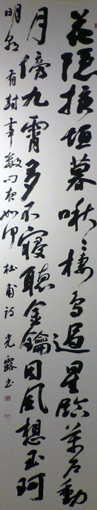 花隱掖垣暮啾々棲鳥過星臨萬戶動
月傍九霄多不寢聽金鑰因風想玉珂
明朝有封事數問夜如何 杜甫詩 光露书